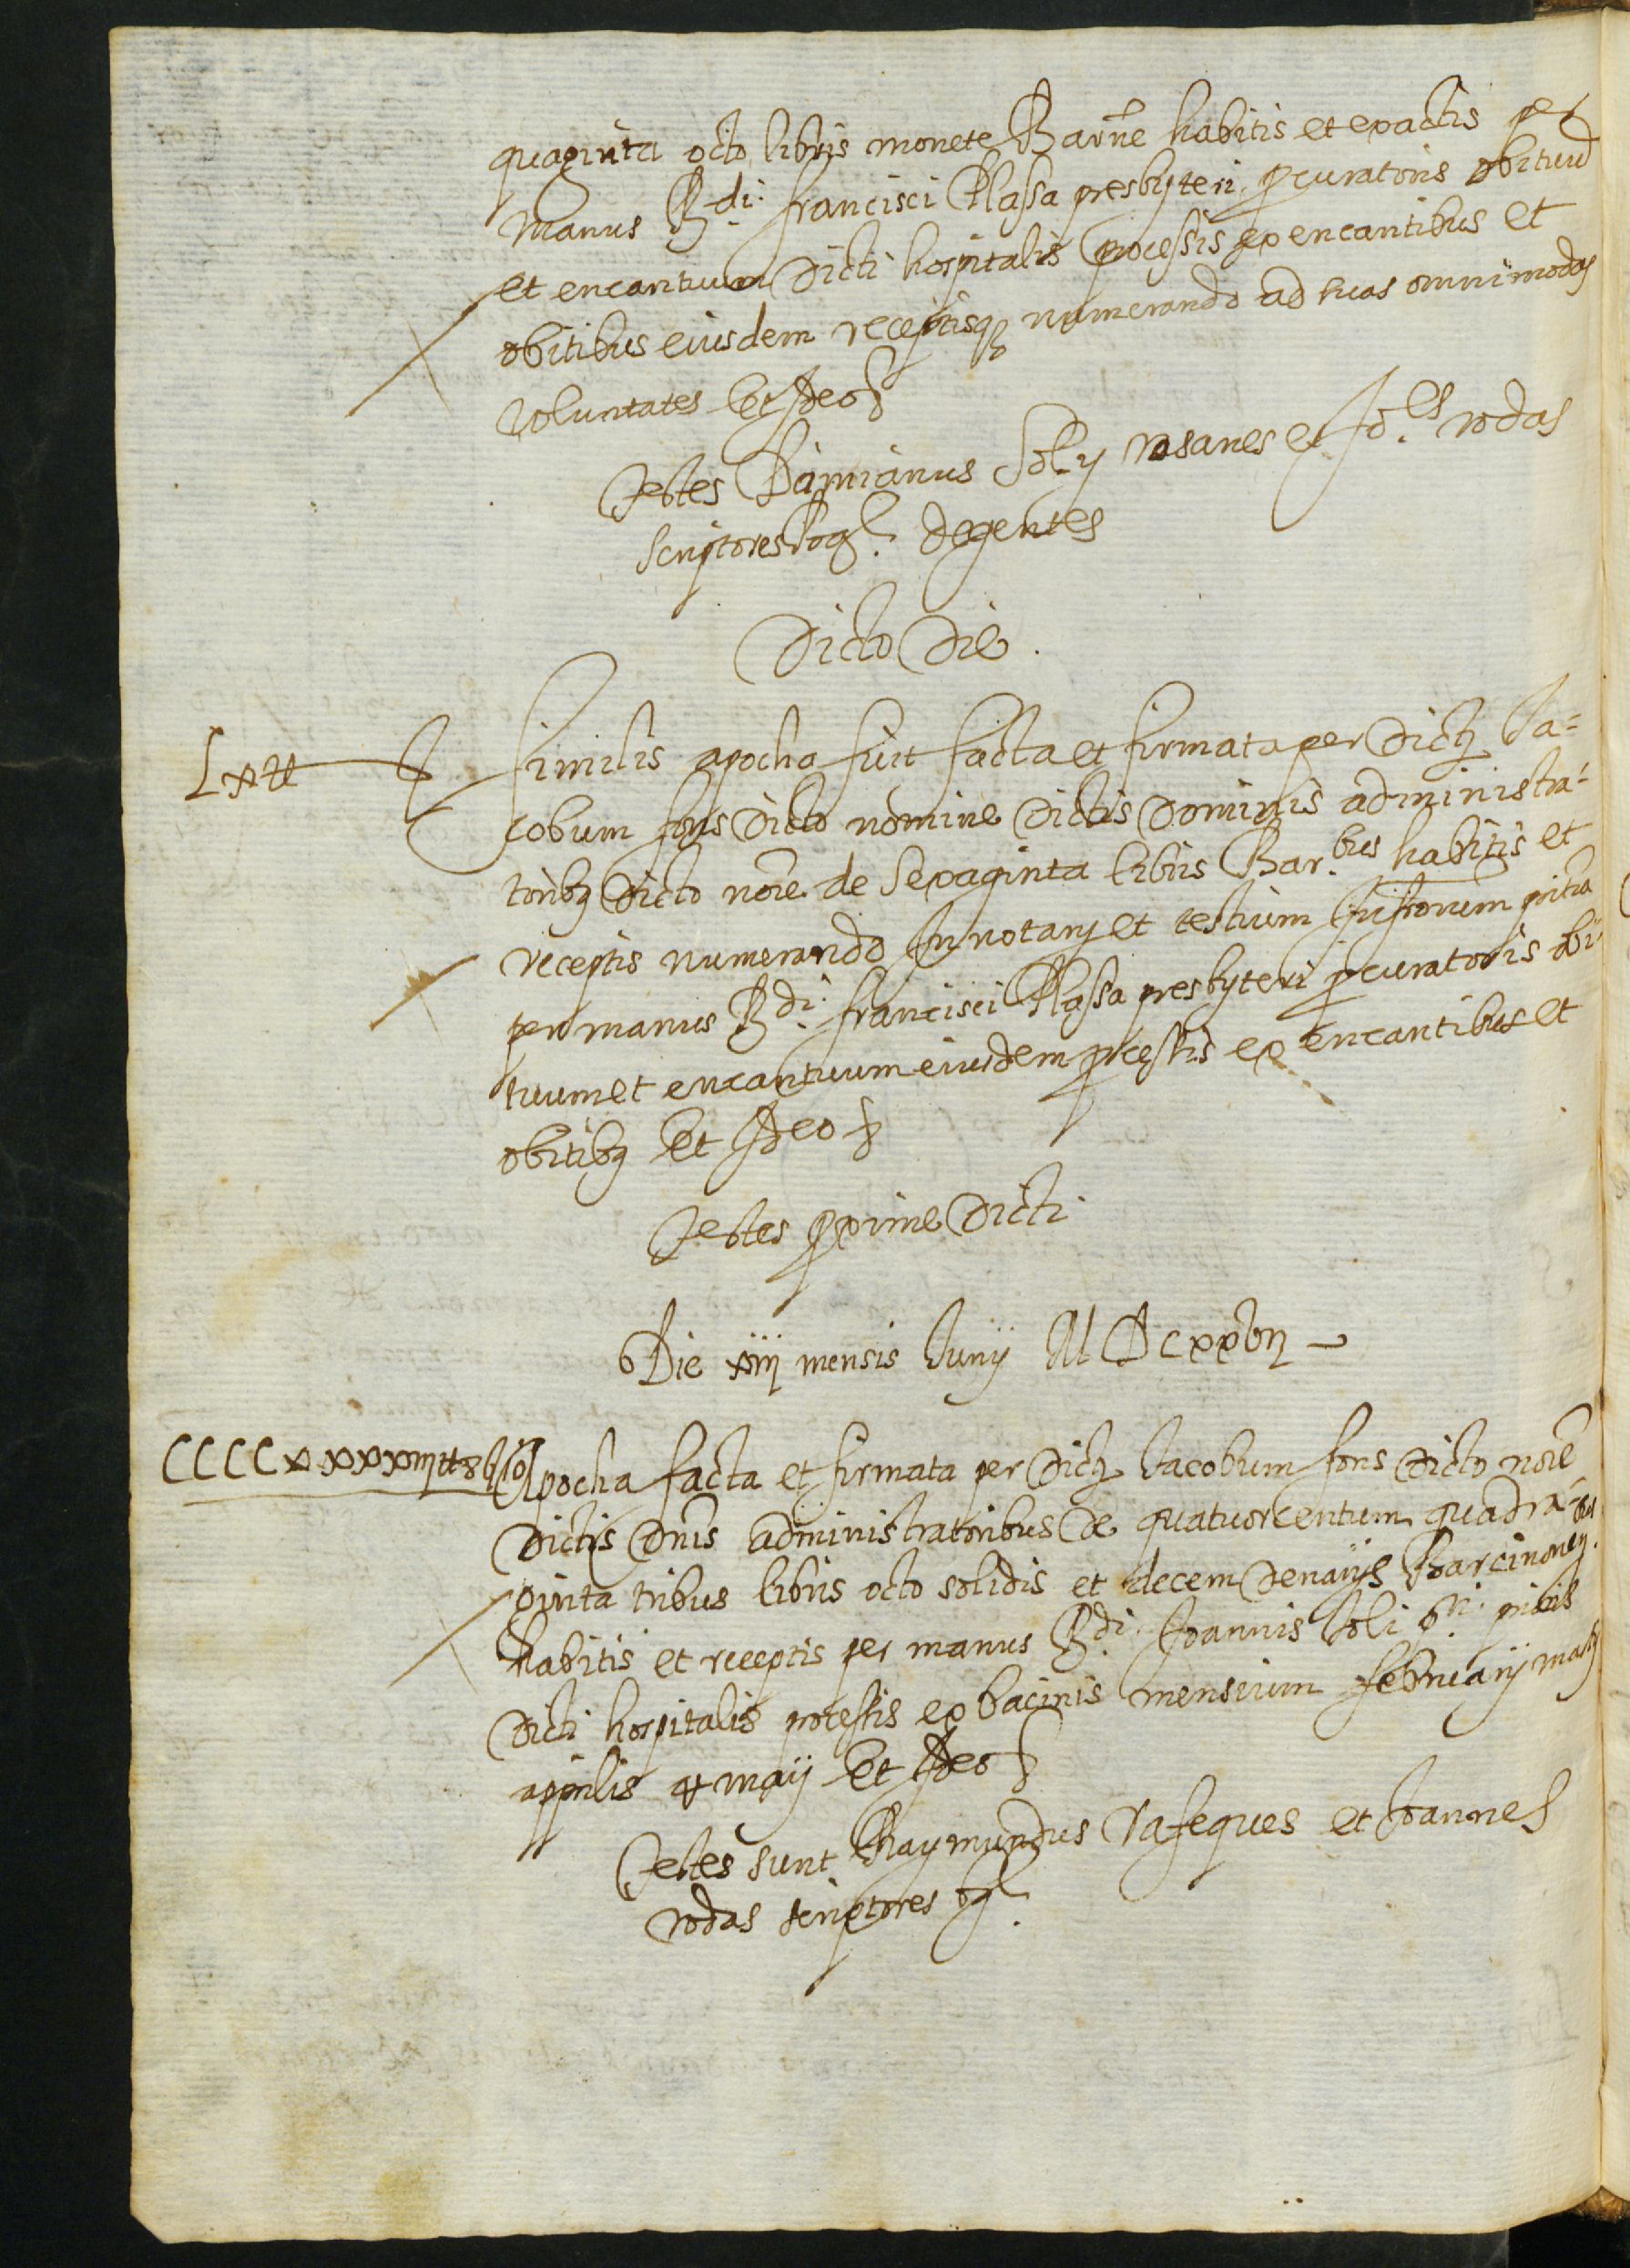 quaginta octo libris monete Barñe habitis et exactis per
manus R.di francisci Plassa presbyteri procuratoris obituũ
et encantuum dicti hospitalis processis ex encantibus et
obitibus eiusdem receptisq₃ numerando ad suas omnimodas
voluntates Et Ideo &
Testes Damianus Soly rosanes et Jo.es rodas
scriptores degentes
Dicto Die.
Lx tt Similis apocha fuit facta et firmata per dictũ Ja=
cobum fons dicto nomine dictis Dominis administra-
torib₃ dicto noĩe de sexaginta libris Bar.bus habitis et
receptis numerando In notarij et testium Infrorum pñtia
per manus R.di francisci Plassa presbyteri procuratoris obi-
tuum et encantuum eiusdem processis ex encantibus et
obitib₃ Et Ideo &
Testes proxime Dicti
Die xiiij mensis Junij MDCxxvij
CCCCxxxxiij tt 8 ß 10 Apocha facta et firmata per dictũ Jacobum fons dicto noĩe
dictis Dñis administratoribus de quatuorcentum quadra-
ginta tribus libris octo solidis et decem denarijs Barcinoneñ.bus
habitis et receptis per manus R.di Joannis Soli pñris
dicti hospitalis processis ex bacinis mensium februarij martij
apprilis et maij Et Ideo &
Testes sunt Raymundus Vafeques et Joannes
rodas scriptores